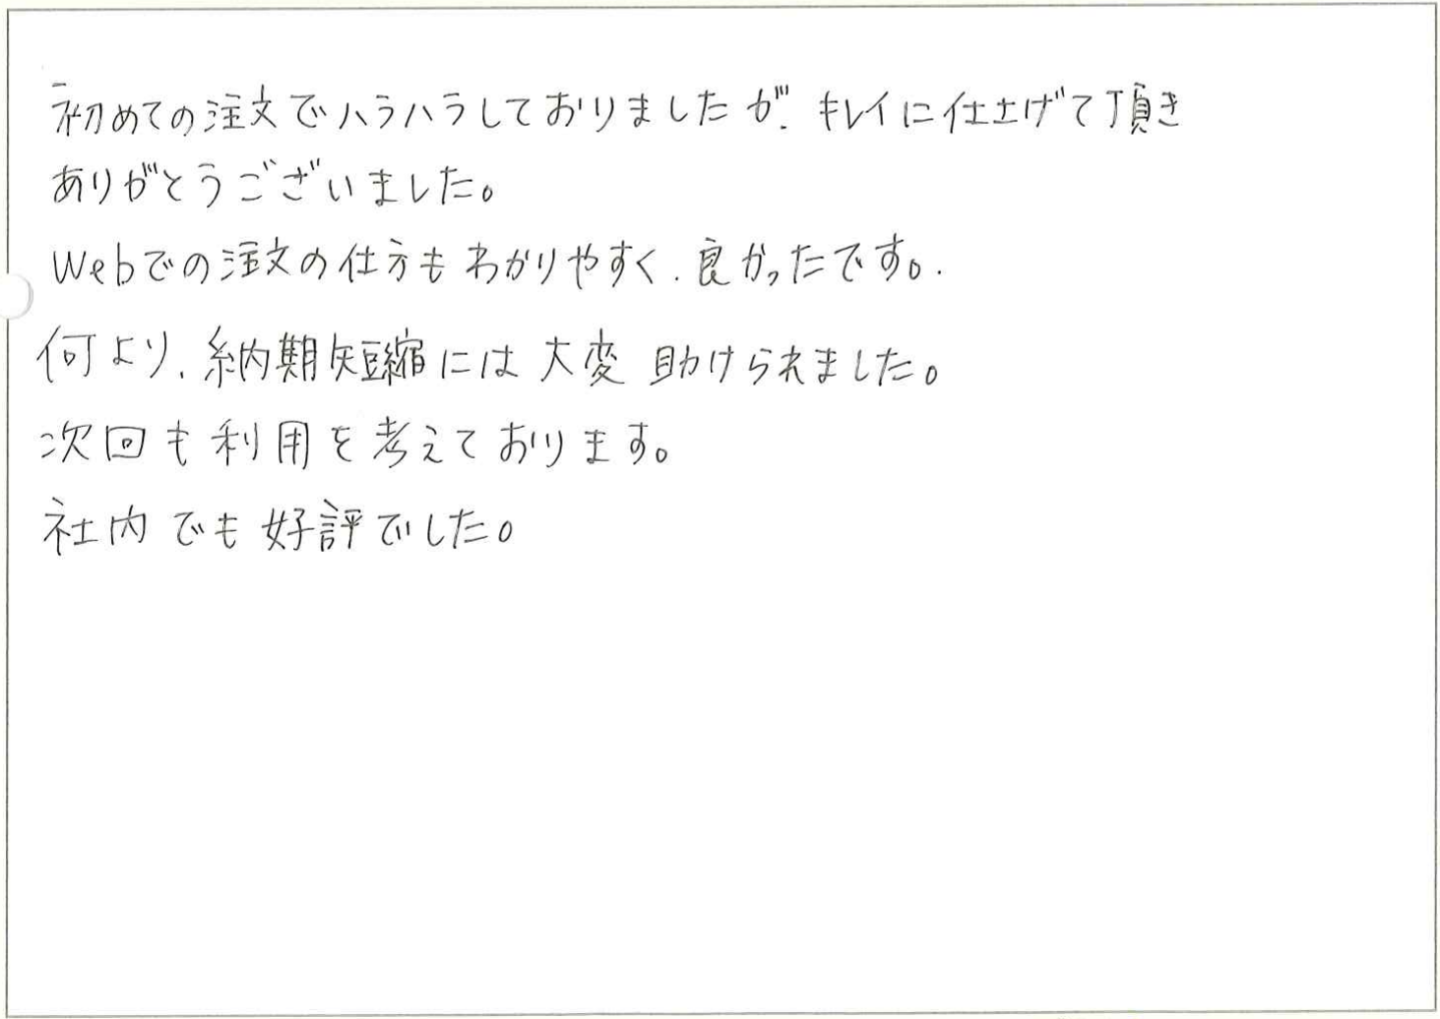 初めての注文でハラハラしておりましたが、キレイに仕上げて頂き
ありがとうございました。
Webでの注文の仕方もわかりやすく、良かったです。
何より、納期短縮には大変助けられました。
次回も利用を考えております。
社内でも好評でした。